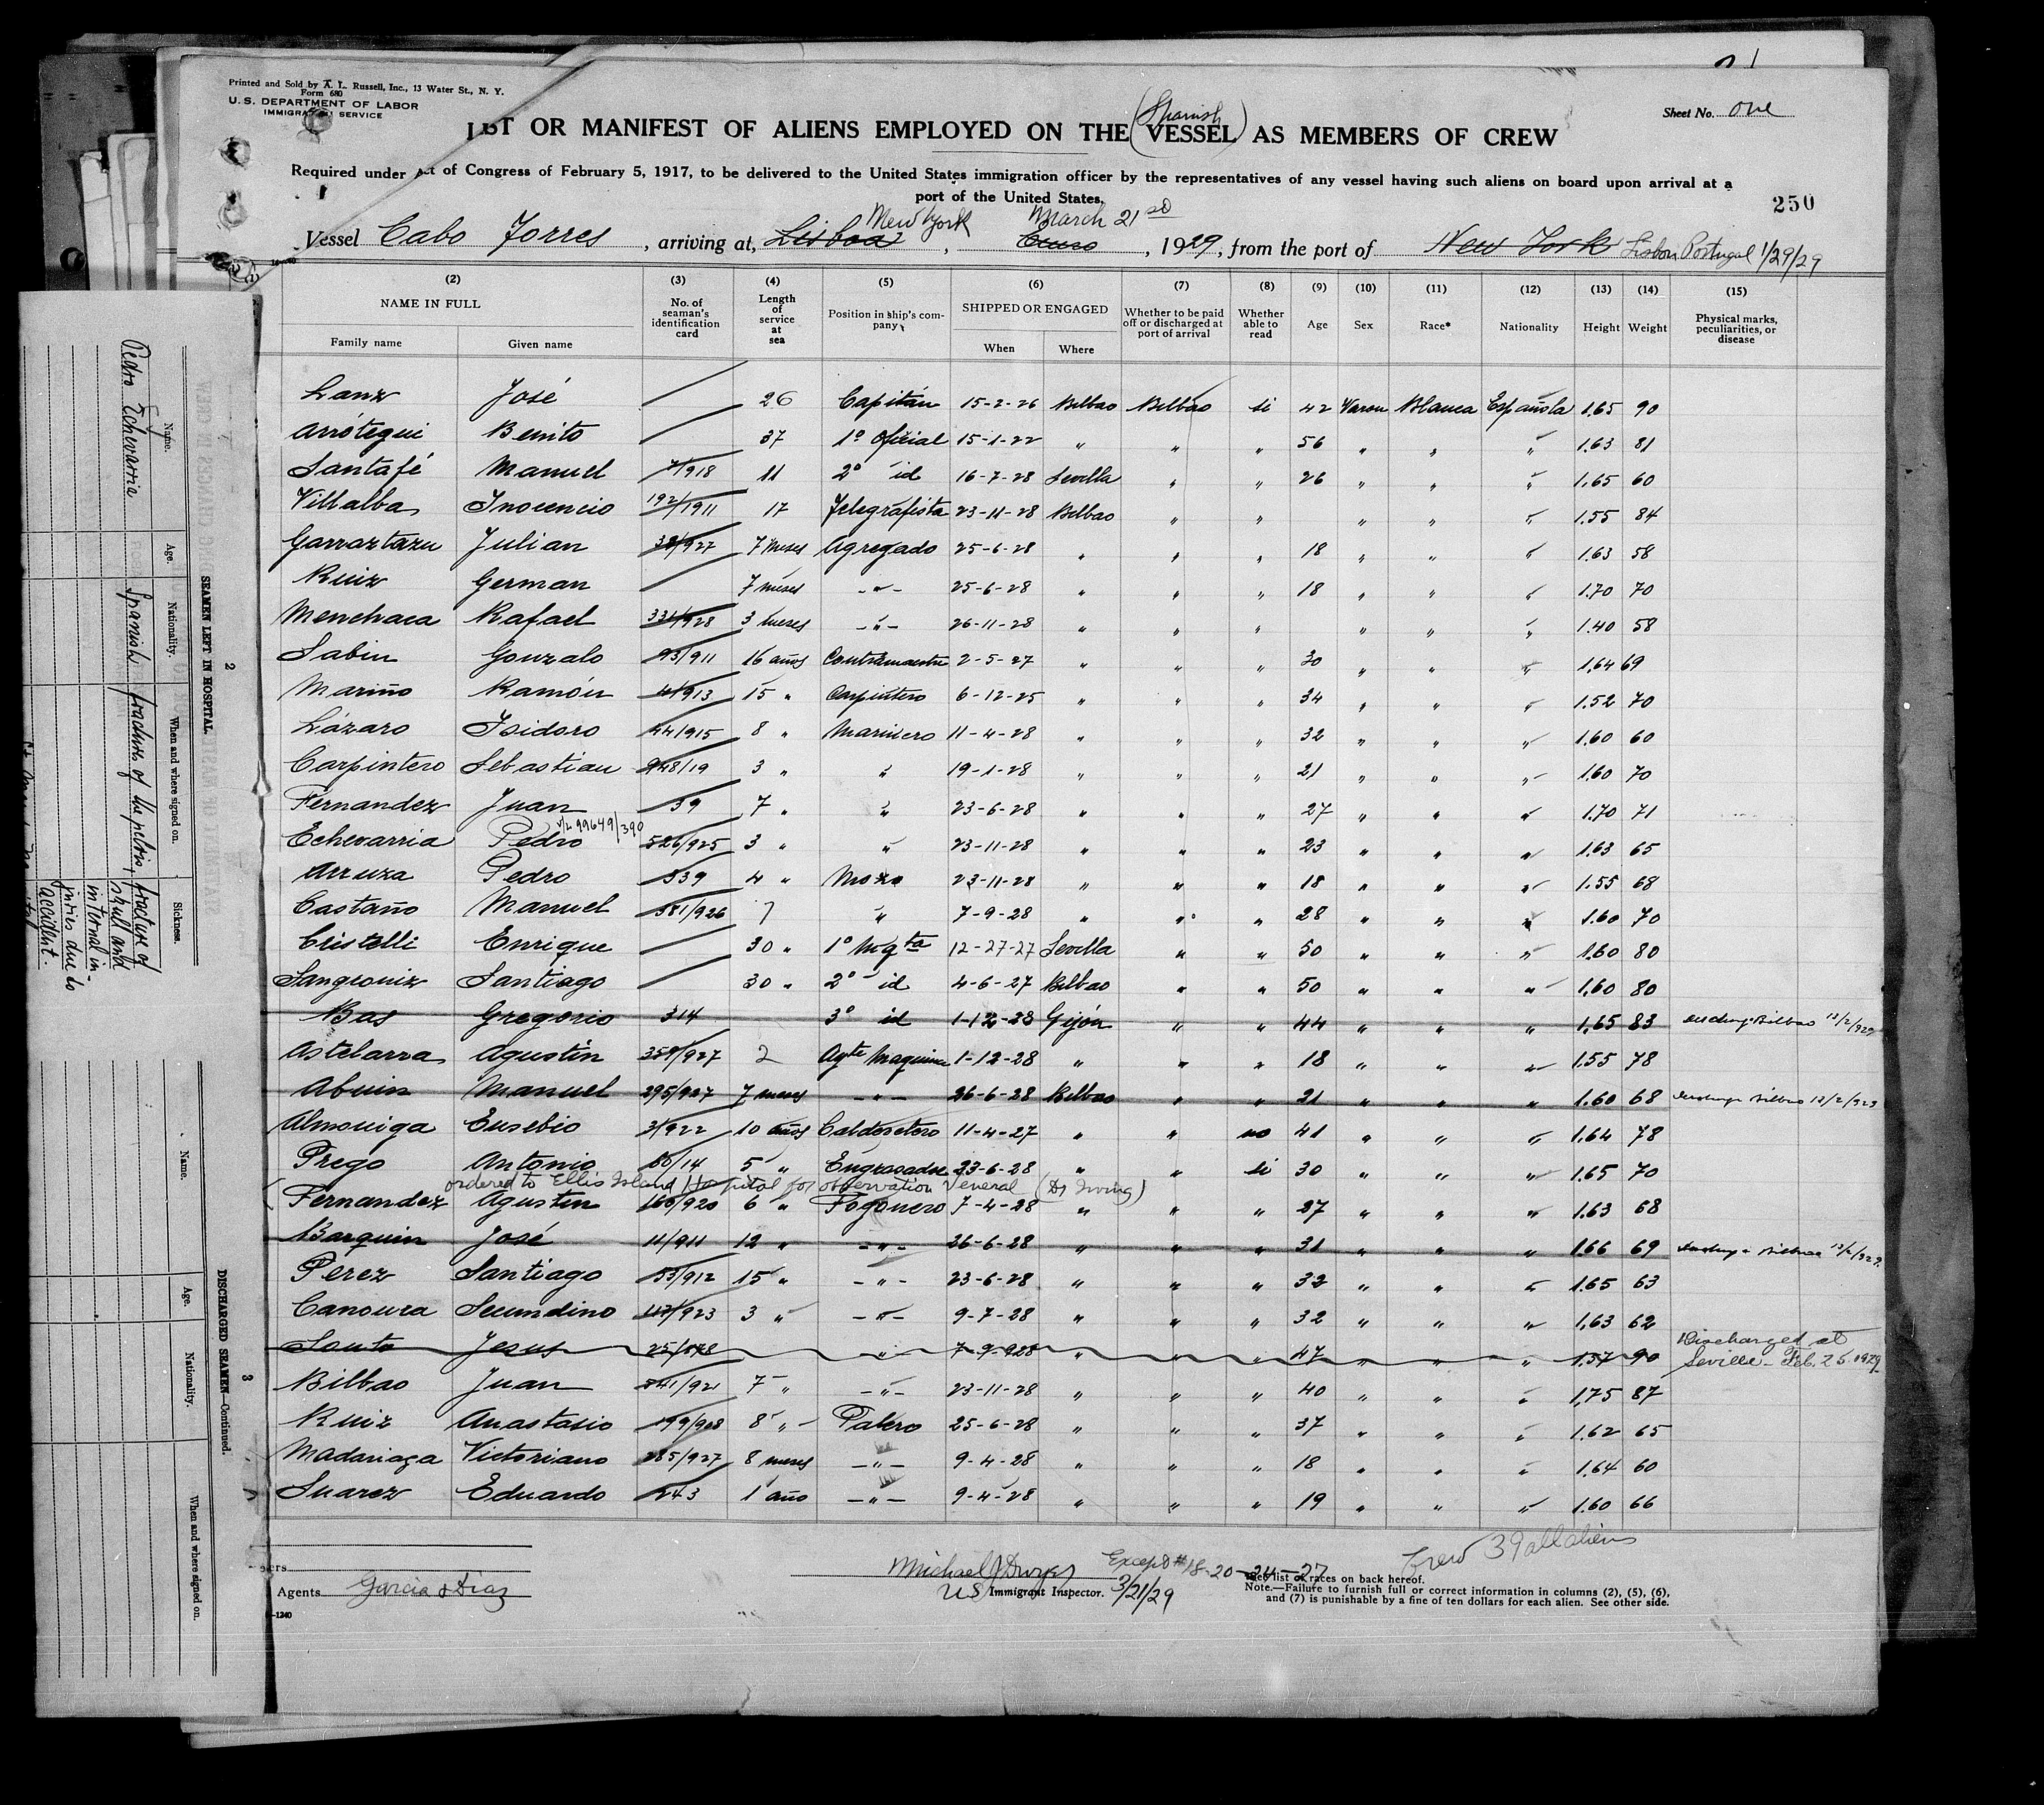 Printed and Sold by A. L. Russell, Inc., 13 Water St., N. Y.
Form 680
U. S. DEPARTMENT OF LABOR
IMMIGRATION SERVICE
Sheet No. one
(Spanish)
LIST OR MANIFEST OF ALIENS EMPLOYED ON THE VESSEL AS MEMBERS OF CREW
Required under Act of Congress of February 5, 1917, to be delivered to the United States immigration officer by the representatives of any vessel having such aliens on board upon arrival at a
port of the United States.
250
New York March 21st
Vessel Cabo Torres, arriving at, Lisboa, Enero, 1929, from the port of New York Lisbon Portugal 1/29/29
(2) (3) (4) (5) (6) (7) (8) (9) (10) (11) (12) (13) (14) (15)
NAME IN FULL Family name Given name
No. of seaman's identification card
Length of service at sea
Position in ship's company
SHIPPED OR ENGAGED When Where
Whether to be paid off or discharged at port of arrival
Whether able to read
Age Sex Race* Nationality Height Weight
Physical marks, peculiarities, or disease
Lanz José 26 Capitán 15-2-26 Bilbao Bilbao si 42 Varon Blanca Española 1.65 90
Arrótegui Benito 37 1º Oficial 15-1-22 " " " 56 " " " 1.63 81
Santafé Manuel 7/918 11 2º id 16-7-28 Sevilla " " 26 " " " 1.65 60
Villalba Inocencio 192/1911 17 Telegrafista 23-11-28 Bilbao " " " " " 1.55 84
Garraztazu Julian 38/927 7 meses Agregado 25-6-28 " " " 18 " " " 1.63 58
Ruiz German 7 meses -"- 25-6-28 " " " 18 " " " 1.70 70
Menchaca Rafael 331/928 3 meses -"- 26-11-28 " " " " " " 1.40 58
Sabin Gonzalo 93/911 16 años Contramaestre 2-5-27 " " " 30 " " " 1.64 69
Mariño Ramón 4/913 15 " Carpintero 6-12-25 " " " 34 " " " 1.52 70
Lázaro Isidoro 44/915 8 " Marinero 11-4-28 " " " 32 " " " 1.60 60
Carpintero Sebastian 248/19 3 " " 19-1-28 " " 21 " " " 1.60 70
Fernandez Juan 39 7 " " 23-6-28 " " " 27 " " " 1.70 71
99649/390
Echevarria Pedro 526/925 3 " " 23-11-28 " " " 23 " " " 1.63 65
Arruza Pedro 539 4 " Mozo 23-11-28 " " " 18 " " " 1.55 68
Castaño Manuel 581/926 7 " 7-9-28 " " " 28 " " " 1.60 70
Cristelli Enrique 30 " 1º Maqta 12-27-27 Sevilla " " 50 " " " 1.60 80
Sangroniz Santiago 30 " 2º id 4-6-27 Bilbao " " 50 " " " 1.60 80
Bas Gregorio 314 3º id 1-12-28 Gijón " " 44 " " " 1.65 83 Bilbao 12/2/929
Astelarra Agustin 359/927 2 Ayte Maquina 1-12-28 " " " 18 " " " 1.55 78
Abuin Manuel 295/927 7 meses -"- 26-6-28 Bilbao " " 21 " " " 1.60 68 Bilbao 12/2/929
Almoniga Eusebio 3/922 10 años Calderetero 11-4-27 " " no 41 " " " 1.64 78
Prego Antonio 80/14 5 " Engrasador 23-6-28 " " si 30 " " " 1.65 70
ordered to Ellis Island Hospital for observation Veneral (Dr Irving)
Fernandez Agustin 160/920 6 " Fogonero 7-4-28 " " " 27 " " " 1.63 68
Barquin José 11/911 12 " -"- 26-6-28 " " 31 " " " 1.66 69 Bilbao 12/2/929
Perez Santiago 53/912 15 " -"- 23-6-28 " " " 32 " " " 1.65 63
Canoura Secundino 113/923 3 " -"- 9-7-28 " " " 32 " " " 1.63 62
Souto Jesus " 7-9-928 " " " 47 " " " 1.57 90 Discharged at
Seville - Feb. 26 1929
Bilbao Juan 841/921 7 " -"- 23-11-28 " " " 40 " " " 1.75 87
Ruiz Anastasio 199/908 8 " Palero 25-6-28 " " " 37 " " " 1.62 65
Madariaga Victoriano 285/927 8 meses -"- 9-4-28 " " " 18 " " " 1.64 60
Suarez Eduardo 243 1 año -"- 9-4-28 " " " 19 " " " 1.60 66
Crew 39 all aliens
Agents Garcia & Diaz
Michael J Dwyer Except #18-20-24-27
US Immigrant Inspector. 3/21/29
list of races on back hereof.
Note.—Failure to furnish full or correct information in columns (2), (5), (6),
and (7) is punishable by a fine of ten dollars for each alien. See other side.
-1240
2
SEAMEN LEFT IN HOSPITAL
Name. Age. Nationality. When and where signed on. Sickness.
Pedro Echevarria Spanish fracture of the pelvis, fracture of
skull and
internal in-
juries due to
accident.
3
DISCHARGED SEAMEN—Continued.
Name. Age. Nationality. When and where signed on.